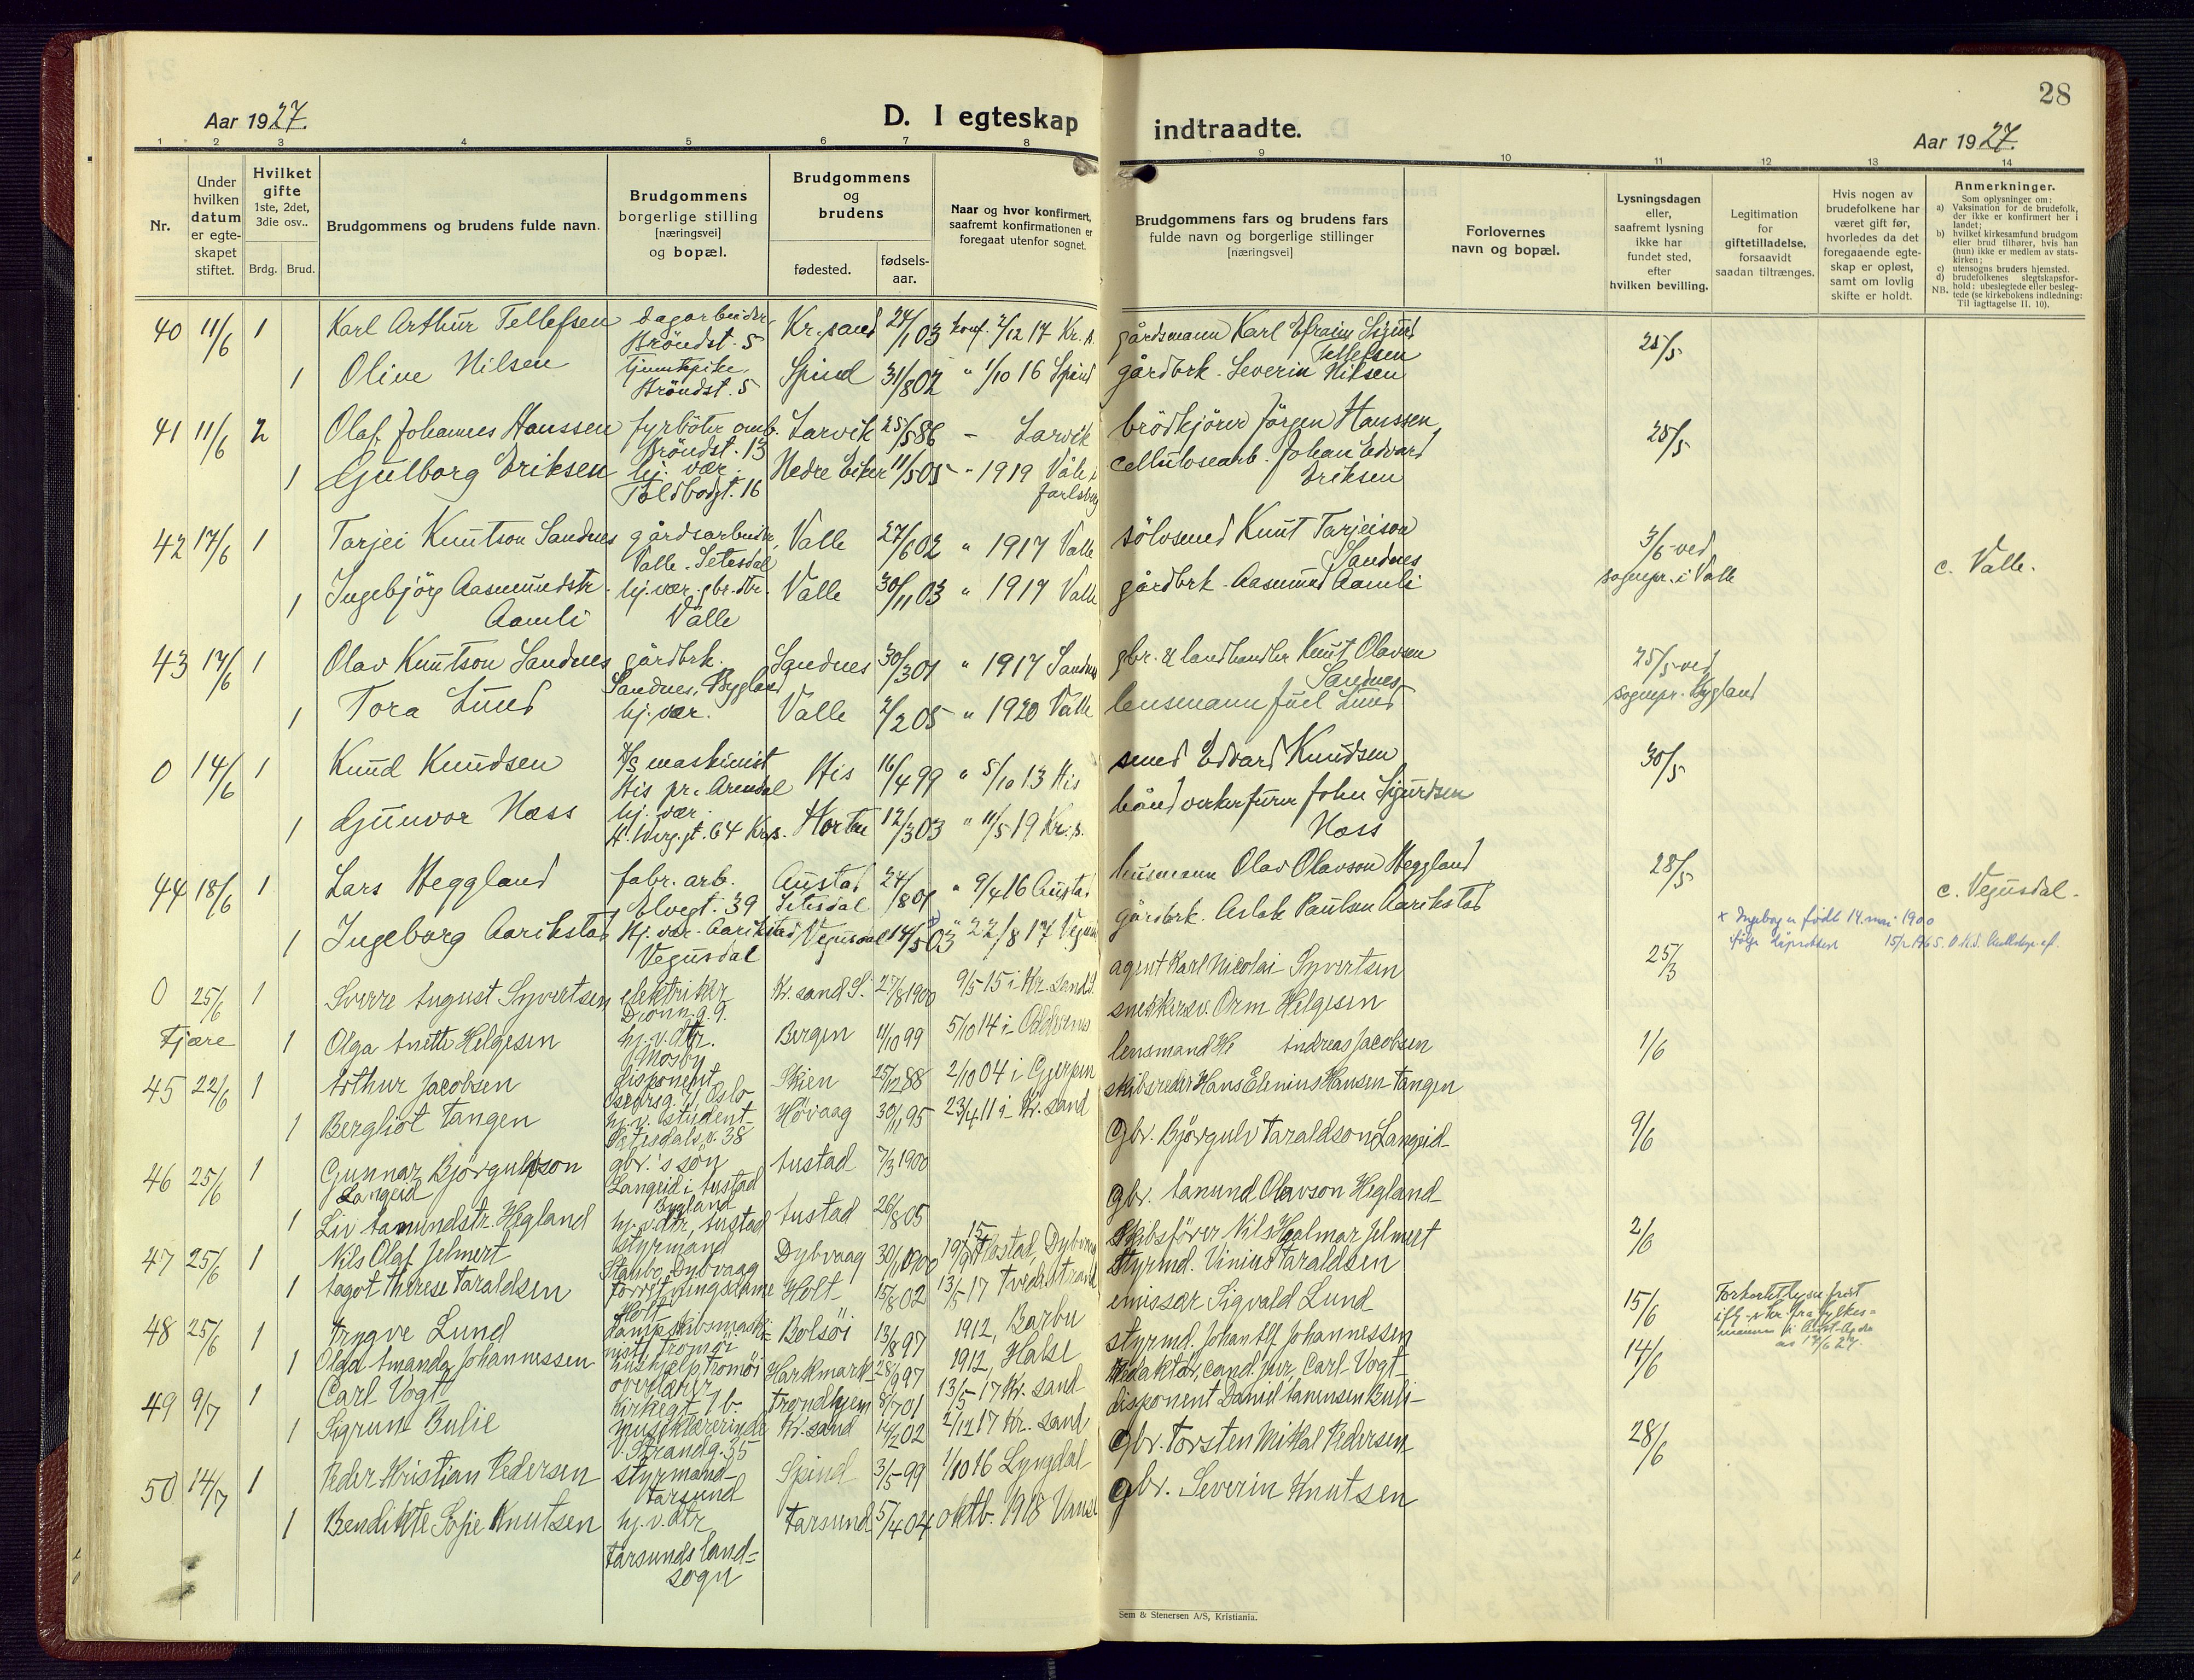 28
Aar 1927.
D. I egteskap
indtraadte.
Aar 1927.
1 2 3 4 5 6 7 8 9 10 11 12 13 14
Nr.
Under hvilken datum er egteskapet stiftet.
Hvilket gifte 1ste, 2det, 3die osv..
Brdg. Brud.
Brudgommens og brudens fulde navn.
Brudgommens borgerlige stilling [næringsvei] og bopæl.
Brudgommens og brudens
fødested.
fødselsaar.
Naar og hvor konfirmert, saafremt konfirmationen er foregaat utenfor sognet.
Brudgommens fars og brudens fars fulde navn og borgerlige stillinger [næringsvei]
Forlovernes navn og bopæl.
Lysningsdagen eller, saafremt lysning ikke har fundet sted, efter hvilken bevilling.
Legitimation for giftetilladelse, forsaavidt saadan tiltrænges.
Hvis nogen av brudefolkene har været gift før, hvorledes da det foregaaende egteskap er opløst, samt om lovlig skifte er holdt.
Anmerkninger.
Som oplysninger om:
a) Vaksination for de brudefolk, der ikke er konfirmert her i landet;
b) hvilket kirkesamfund brudgom eller brud tilhører, hvis han (hun) ikke er medlem av statskirken;
c) utensogns bruders hjemsted.
d) brudefolkenes slegtskapsforhold: ubeslegtede eller beslegtede (se kirkebokens indledning: Til iagttagelse II. 10).
NB.
40 11/6 1 Karl Arthur Tellefsen dagarbeider Bröndst. 5 Kr.sand 24/1 03 konf. 2/12 17 Kr.s. gårdsmann Karl Efraim Sigurd Tellefsen 25/5
1 Oline Nilsen tjenestepike Bröndst. 5 Spind 31/8 02 " 1/10 16 Spind gårdbrk. Severin Nilsen
41 11/6 2 Olaf Johannes Hanssen fyrböter omb. Bröndst. 13 Larvik 25/5 86 - Larvik brödkjörer Jörgen Hanssen 25/5
1 Gulborg Eriksen hj. vær. Toldbodgt. 16 Nedre Eiker 11/5 05 - 1919 Våle i Jarlsberg cellulosearb. Johan Edvard Eriksen
42 17/6 1 Tarjei Knutson Sandnes gårdsarbeider, Valle. Setesdal Valle 27/6 02 " 1917 Valle sölvsmed Knut Tarjeison Sandnes 3/6 ved sognepr. i Valle c. Valle.
1 Ingebjörg Aasmundstr. Aamli hj.vær. gbr. dtr. Valle Valle 30/11 03 " 1917 Valle gårdbrk. Aasmund Aamli
43 17/6 1 Olav Knutson Sandnes gårdbrk. Sandnes, Bygland Sandnes 30/3 01 " 1917 Sandnes gbr. & landhandler Knut Olavson Sandnes 25/5 ved sognepr. Bygland
1 Tora Lund hj. vær. Valle 2/2 05 " 1920 Valle lensmann Juel Lund
0 14/6 1 Knud Knudsen D/S maskinist His pr. Arendal His 16/4 99 " 5/10 13 His smed Edvard Knudsen 30/5
1 Gunvor Næss hj. vær. H. Werg.gt. 64 Krs. Horten 12/3 03 " 11/5 19 Kr.s. håndverkerfurer John Sigurdsen Næss
44 18/6 1 Lars Heggland fabr. arb. Elvegt. 39 Austad Setesdal 24/8 01 " 9/4 16 Austad husmann Olav Olavson Heggland 28/5 c. Vegusdal.
1 Ingeborg Aarikstad hj. vær. Aarikstad, Vegusdal Vegusdal 14/5 03 " 22/8 17 Vegusd gårdbrk. Aslak Paulsen Aarikstad
x Ingeborg er født 14. mai 1900
0 25/6 1 Sverre August Syvertsen elektriker Dronn.g. 9. Kr.sand S. 27/8 1900 9/5 15 i Kr.sand S. agent Karl Nicolai Syvertsen 25/3
Fjære 1 Olga Anette Helgesen hj.v.dtr. Mosby Bergen 11/10 99 5/10 14 i Oddernes snedkersv. Orm Helgesen
45 22/6 1 Arthur Jacobsen disponent Oscarsg. 71 Oslo Skien 25/12 88 2/10 04 i Gjerpen lensmand He Andreas Jacobsen 1/6
1 Bergliot Tangen hj.v. student Setesdalsv. 38 Hövaag 30/11 95 23/4 11 i Kr.sand skibsreder Hans Elenius Hansen Tangen
46 25/6 1 Gunnar Björgulvson Langeid gbr.'s sön Langeid i Austad Bygland Austad 7/3 1900 Gbr. Björgulv Taraldson Langeid 9/6
1 Liv Aanundstr. Hegland hj.v.dtr, Austad Austad 26/8 05 Gbr. Aanund Olavson Hegland
47 25/6 1 Nils Olaf Jelmert styrmand Staubo, Dybvaag Dybvaag 30/11 1900 19/9 15 Flostad, Dybvaag Skibsförer Nils Hjalmar Jelmert 2/6
1 Aagot Therese Taraldsen forretningsdame Holt Holt 15/8 02 13/5 17 Tvedestrand Styrmd. Vinius Taraldsen
48 25/6 1 Trygve Lund dampskibsmaskinist, Tromöi Bolsöi 13/8 97 1912, Barbu emissær Sigvald Lund 15/6 Forkortet lysn. frist
1 Olga Amanda Johannessen hushjelp Tromöi Harkmark 28/9 97 1912, Halse styrmd. Johan Alf Johannessen
49 9/7 1 Carl Vogt overlærer Kirkegt. 1 b. Trondhjem 8/7 01 13/5 17 Kr.sand Redaktör, cand. jur. Carl Vogt 14/6
1 Sigrun Bulie musiklærerinde V. Strandg. 35 Kr.sand 14/2 02 2/12 17 Kr.sand disponent Daniel Aanensen Buli
50 14/7 1 Peder Kristian Pedersen styrmand Farsund Spind 3/5 99 1/10 16 Lyngdal Gbr. Torsten Mikal Pedersen 28/6
1 Bendikte Sofie Knutsen hj.v.dtr Farsunds landsogn Farsund 5/4 04 oktb. 1918 Vanse Gbr. Severin Knutsen
Sem & Stenersen A/S, Kristiania.